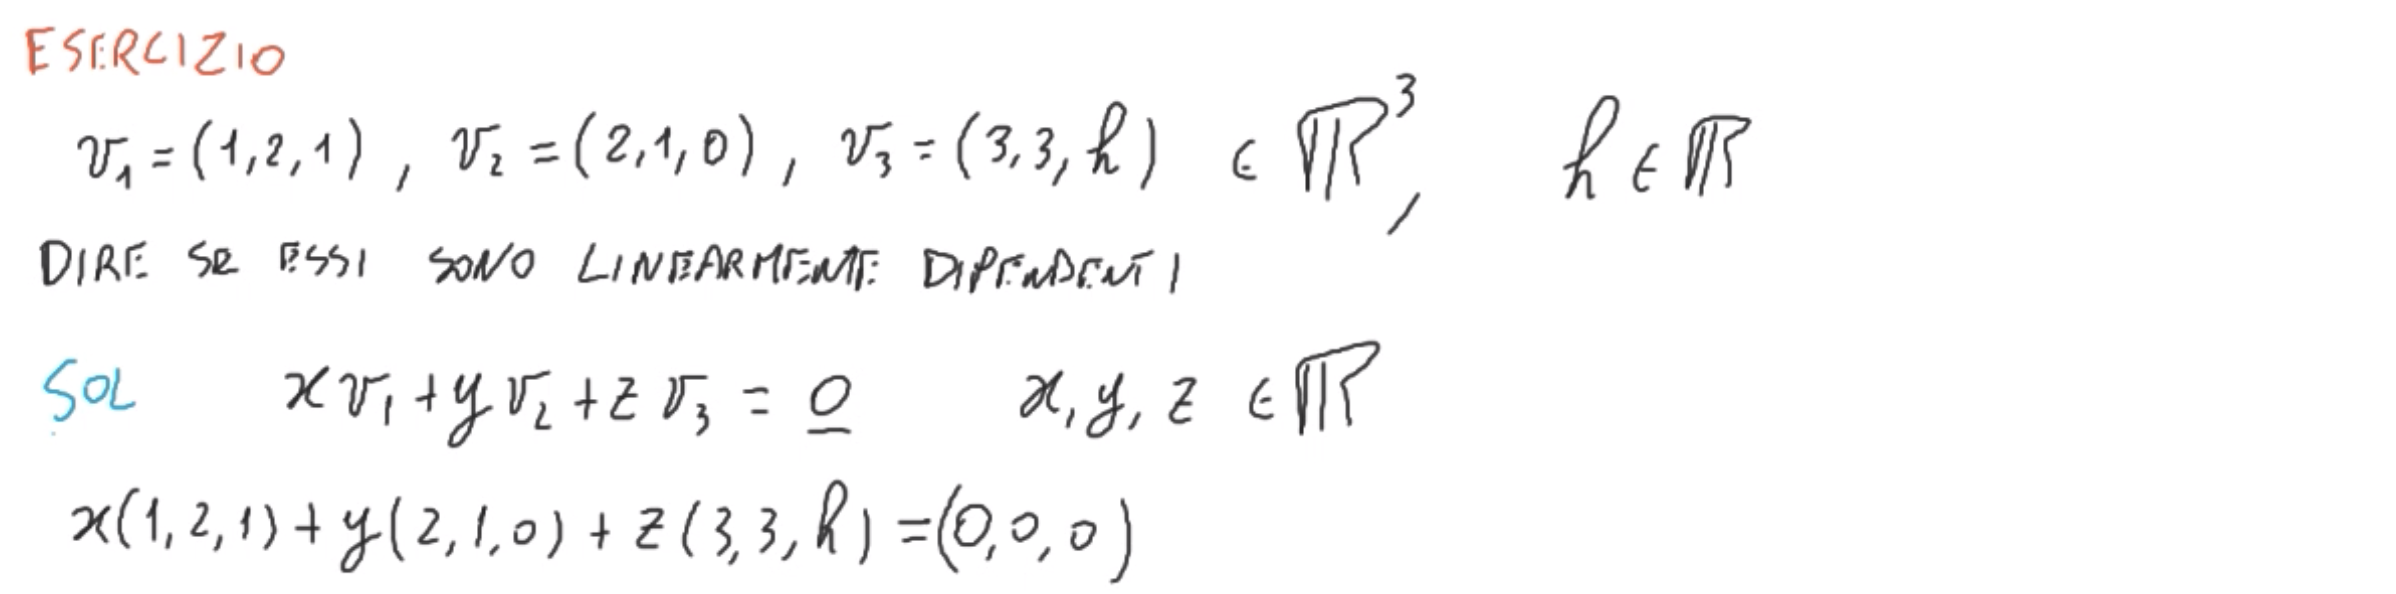 ESERCIZIO
v₁ = (1,2,1) , v₂ = (2,1,0) , v₃ = (3,3,h) ∈ ℝ³, h ∈ ℝ
DIRE SE ESSI SONO LINEARMENTE DIPENDENTI
SOL x v₁ + y v₂ + z v₃ = 0 x, y, z ∈ ℝ
x(1,2,1) + y(2,1,0) + z(3,3,h) = (0,0,0)